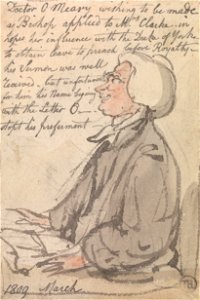 Doctor O Meary wishing to be made
a Bishop applied to Mrs Clarke in
hopes her influence with the Duke of York
to obtain leave to preach before Royalty -
his Sermon was well
received, but unfortunately
for him his Name begins
with the Letter O -
stopt his preferment
1809 March